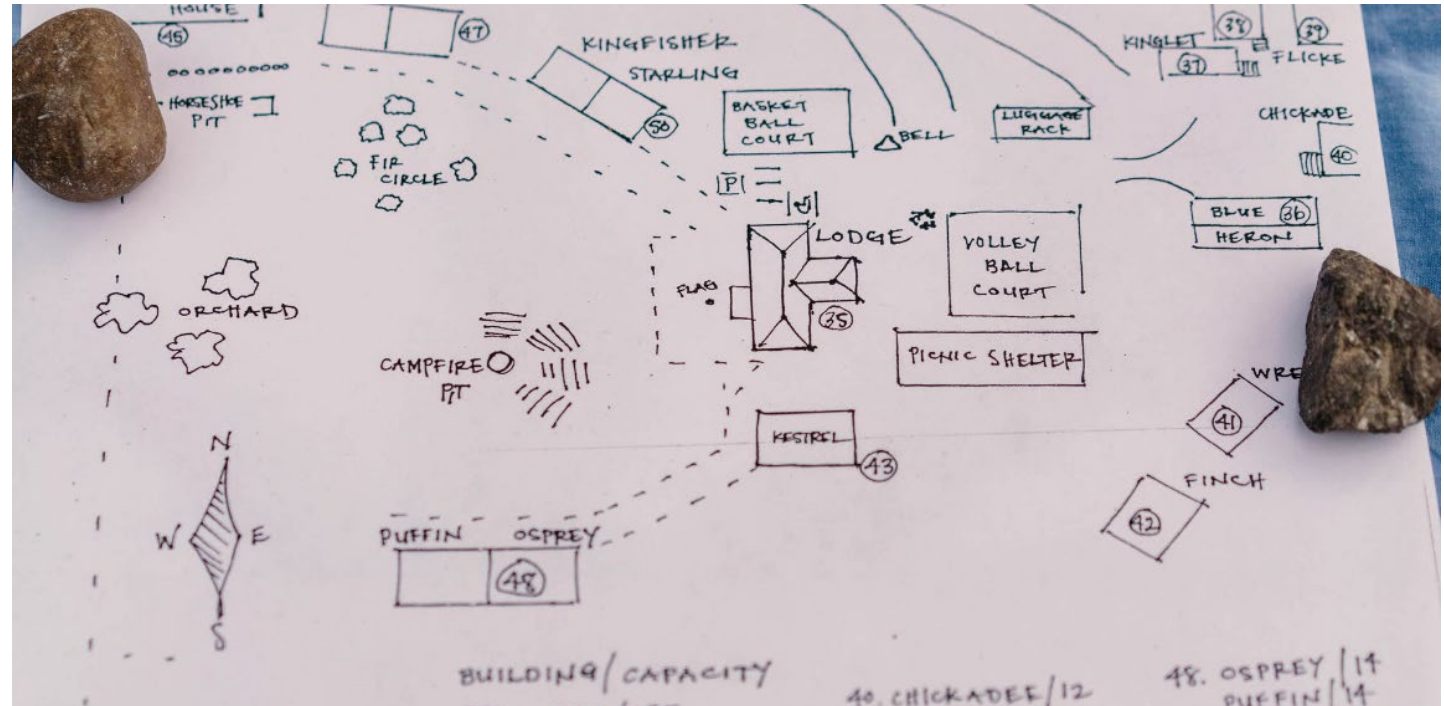 HOUSE
45
47
KINGFISHER
STARLING
50
38
39
KINGLET
37
FLICKE
HORSESHOE
PIT
BASKET
BALL
COURT
BELL
LUGGAGE
RACK
CHICKADE
40
FIR
CIRCLE
P
BLUE 36
HERON
LODGE
VOLLEY
BALL
COURT
FLAG
35
ORCHARD
CAMPFIRE
PIT
PICNIC SHELTER
WRE
41
KESTREL
43
N
W E
S
FINCH
42
PUFFIN OSPREY
48
BUILDING/CAPACITY
40. CHICKADEE/12
48. OSPREY/14
PUFFIN/14